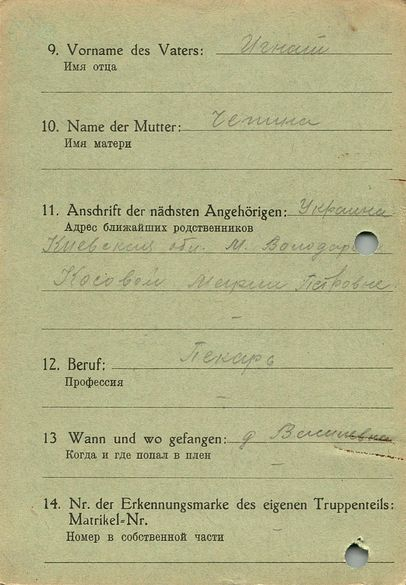 9. Vorname des Vaters: Игнат
Имя отца
10. Name der Mutter: Чепина
Имя матери
11. Anschrift der nächsten Angehörigen: Украина
Адрес ближайших родственников
Киевская обл. М. Володар
Косовой Марии Петровне
12. Beruf: Пекарь
Профессия
13 Wann und wo gefangen: д
Когда и где попал в плен
14. Nr. der Erkennungsmarke des eigenen Truppenteils:
Matrikel-Nr.
Номер в собственной части